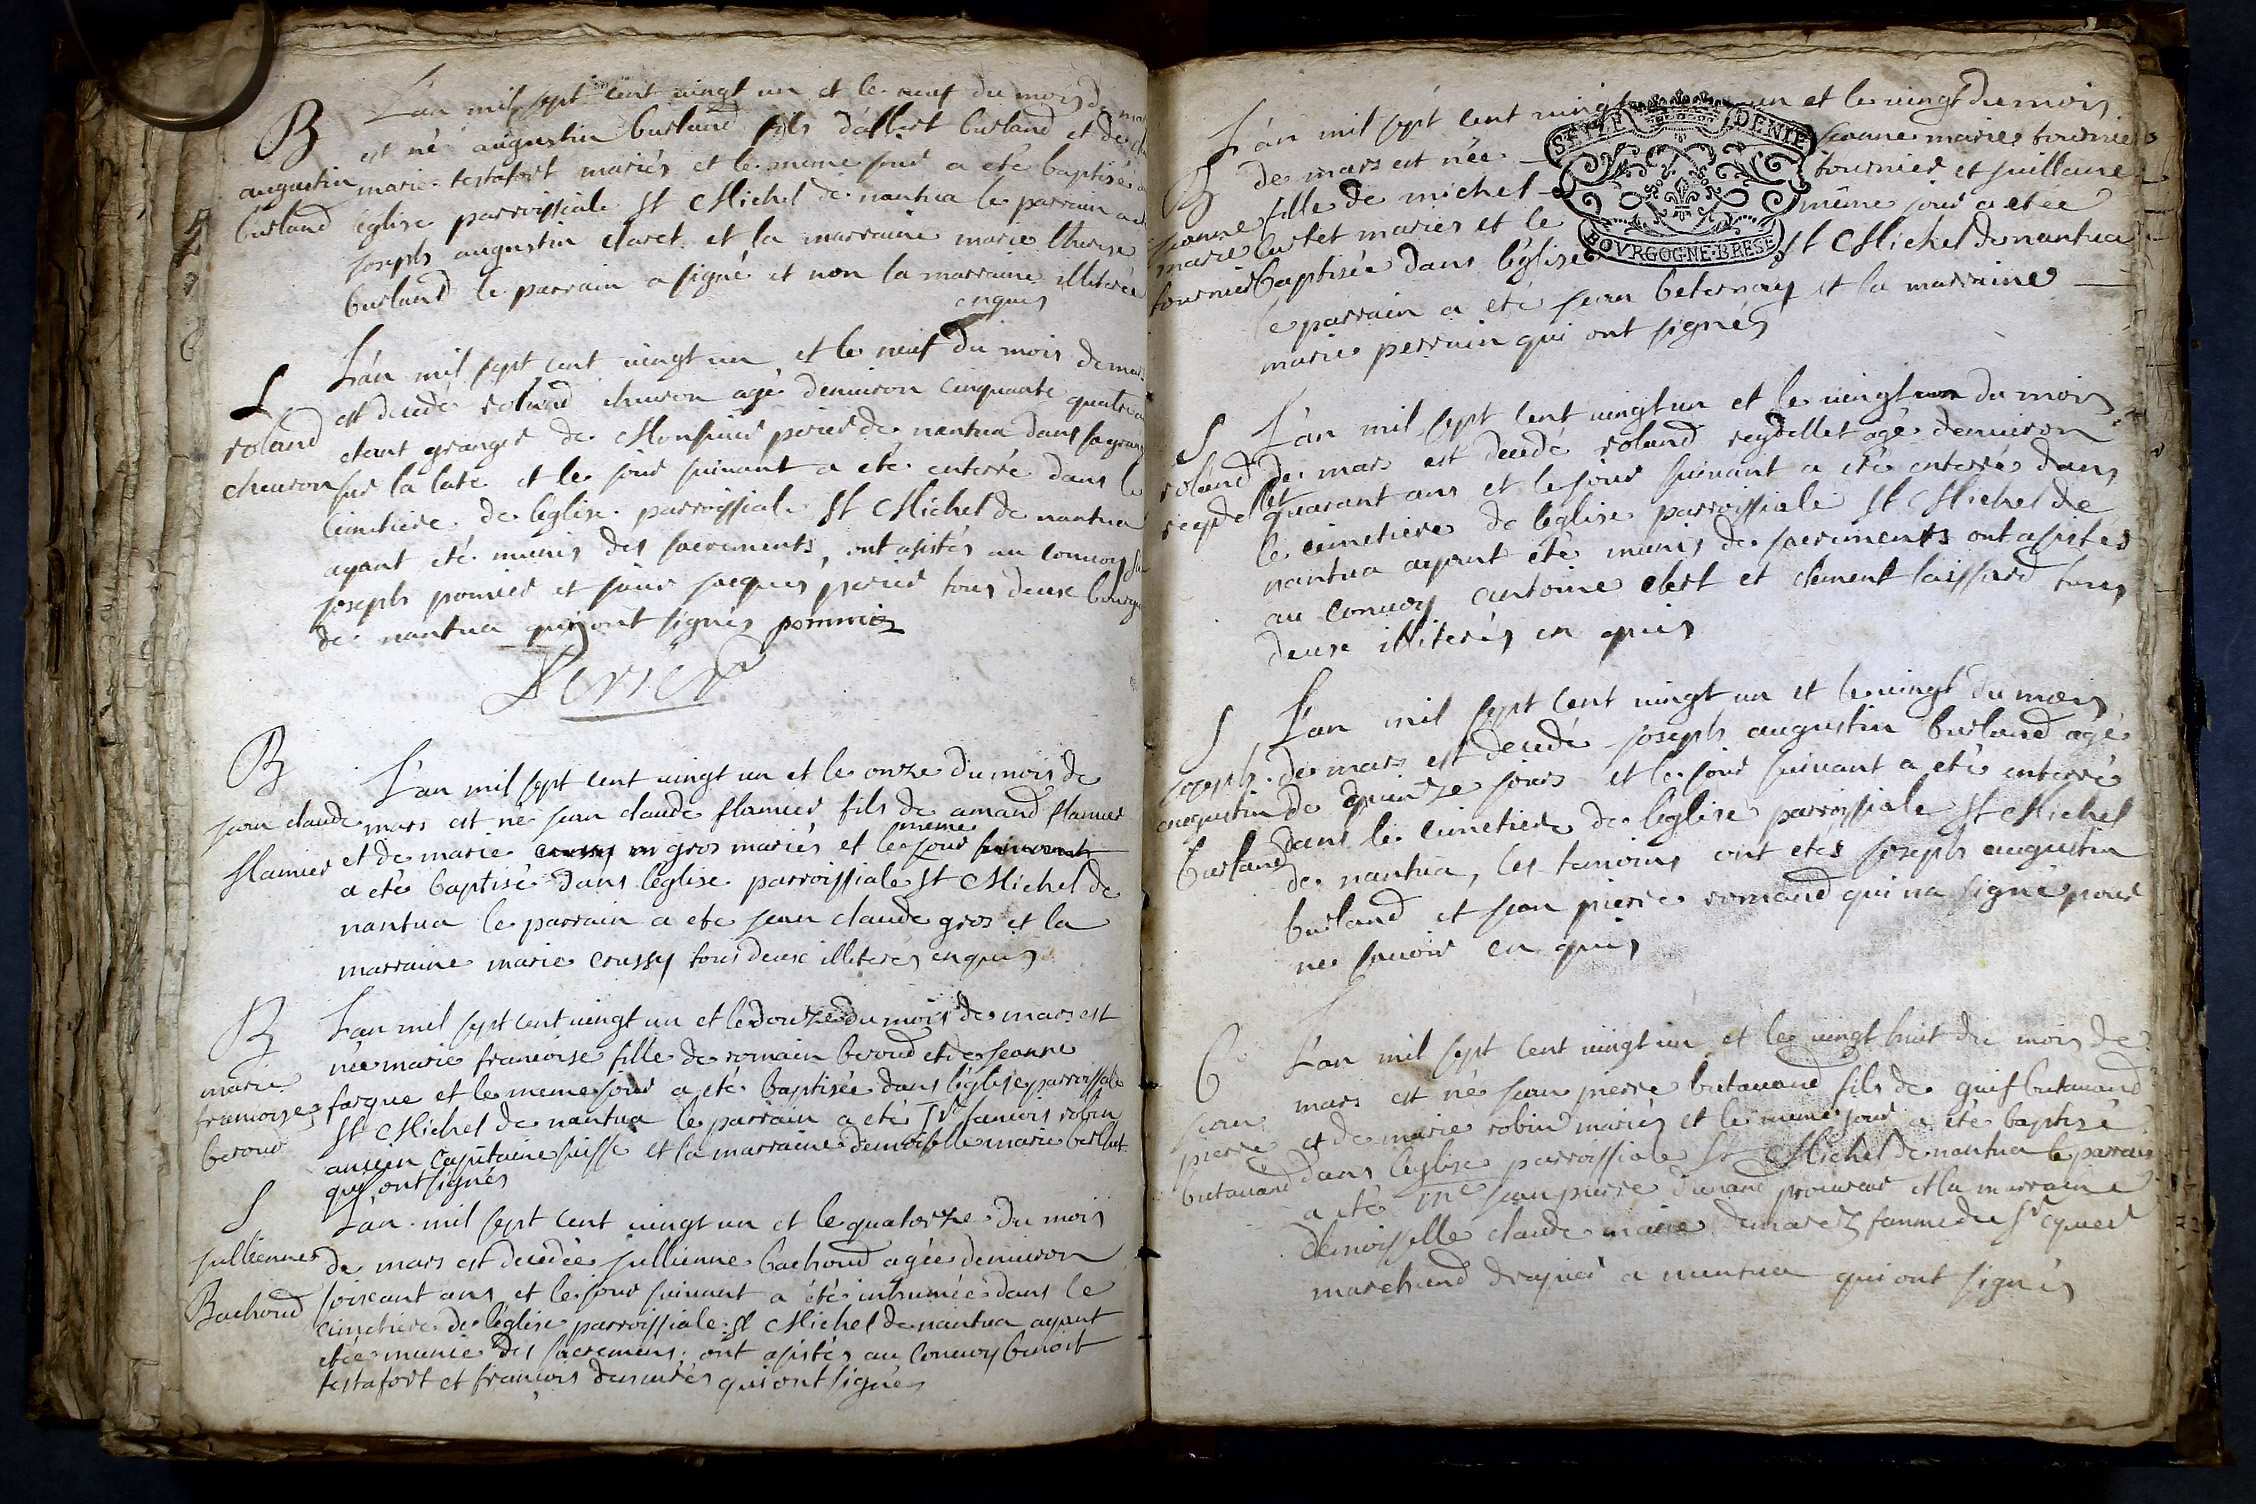 B
augustin
burland
L'an mil sept cent vingt un et le neuf du mois de mars
est né augustin burland fils d'albert burland et de
marie testafort mariés et le meme jour a eté baptisé
eglise parroissiale st Michel de nantua le parrain a
joseph augustin claret et la marraine marie therese
burland le parrain a signé et non la marraine illiterée
enquis
S
roland
chevron
L'an mil sept cent vingt un et le neuf du mois de mars
est decedé roland chevron agé denviron cinquante quatre
etant granger de Monsieur perier de nantua dans sa grang
sur la cate et le jour suivant a eté enterré dans le
cimetiere de leglise parroissiale st Michel de nantua
ayant eté munis des sacrements, ont asistés au convoy
joseph pomier et sieur jacques perier tous deux bourg
de nantua qui ont signés pommier
Perier
B
jean claude
flamier
L'an mil sept cent vingt un et le onze du mois de
mars est né jean claude flamier fils de amand flamier
et de marie gros mariés et le meme jour
a eté baptisé dans leglise parroissiale st Michel de
nantua le parrain a ete jean claude gros et la
marraine marie crussy tous deux illiterés enquis
B
marie
francoise
beroud
L'an mil sept cent vingt un et le douze du mois de mars est
née marie francoise fille de romain beroud et de jeanne
fargue et le meme jour a eté baptisée dans l'eglise parroissiale
st Michel de nantua le parrain a eté Sr francois robin
ancien capitaine suisse et la marraine demoiselle marie berlut
qui ont signés
S
jullienne
Bachoud
L'an mil sept cent vingt un et le quatorze du mois
de mars est decedée jullienne bachoud agée denviron
soixeant ans et le jour suivant a été inhumée dans le
cimetiere de l'église parroissiale st Michel de nantua ayant
etée munie des sacremens, ont asistés au convoy benoit
testafort et francois desuirés qui ont signés
B
jeanne
marie
tournier
L'an mil sept cent vingt un et le vingt du mois
de mars est née jeanne marie tournier
fille de michel tournier et guillaume
curtet mariés et le même jour a etee
baptisée dans l'eglise st Michel de nantua
le parrain a eté jean beternay et la marraine
marie perrain qui ont signés
STE 17E DENIE
BOVRGOGNE·BRESE
S
roland
reydellet
L'an mil sept cent vingt un et le vingt un du mois
de mars est decedé roland reydellet agé denviron
quarant ans et le jour suivant a eté enterré dans
le cimetiere de leglise parroissiale st Michel de
nantua ayant été munis de sacrements ont asistés
au convoy antoine clert et clement laissard tous
deux illiterés en quis
S
joseph
augustin
burland
L'an mil sept cent vingt un et le vingt du mois
de mars est decedé joseph augustin burland agé
de quinze jours et le jour suivant a eté enterré
dans le cimetiere de leglise parroissiale st Michel
de nantua, les temoins ont etés joseph augustin
burland et jean pierre romand qui na signé pour
ne savoir en quis
B
jean
pierre
butavand
L'an mil sept cent vingt un et le vingt huit du mois de
mars est né jean pierre butavand fils de guis butavand
et de marie robin mariés et le meme jour a eté baptisé
dans l'eglise parroissiale St Michel de nantua le parrain
a eté me jean pierre dunand procureur et la marraine
demoiselle claude marie demarez famme du sr
marchand drapier a nantua qui ont signés